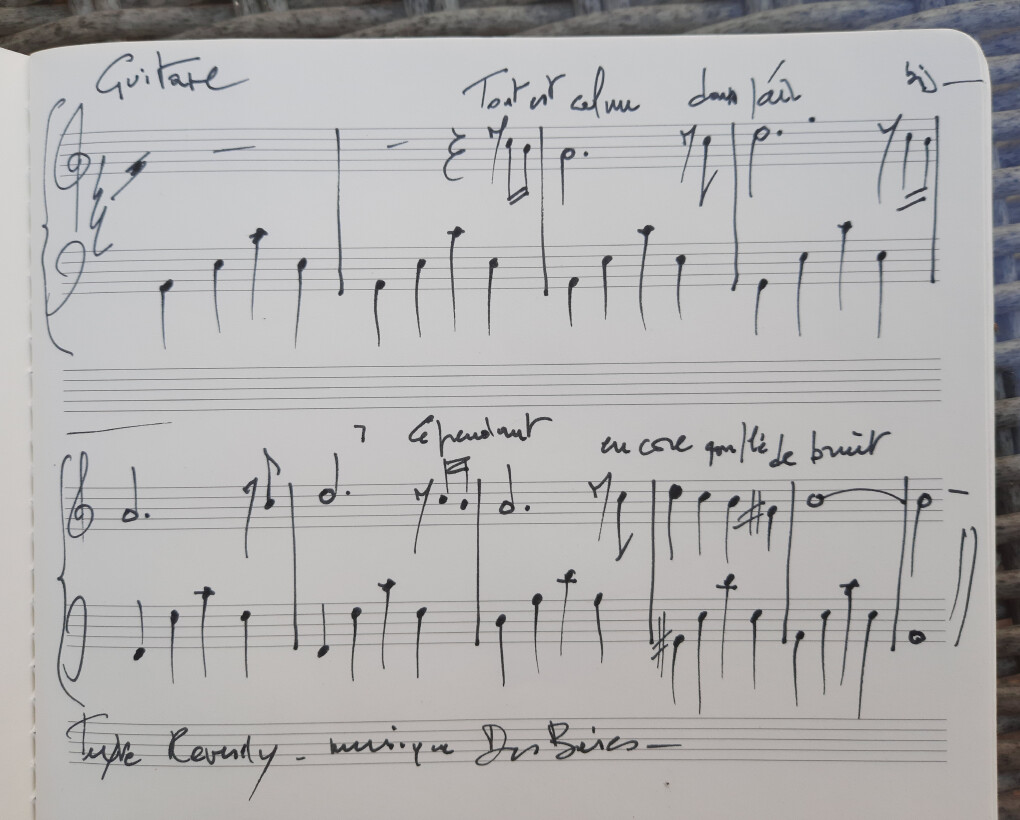 Guitare
Tout est calme dans l'air
bis
Cependant encore gonflé de bruit
Texte Reverdy - musique